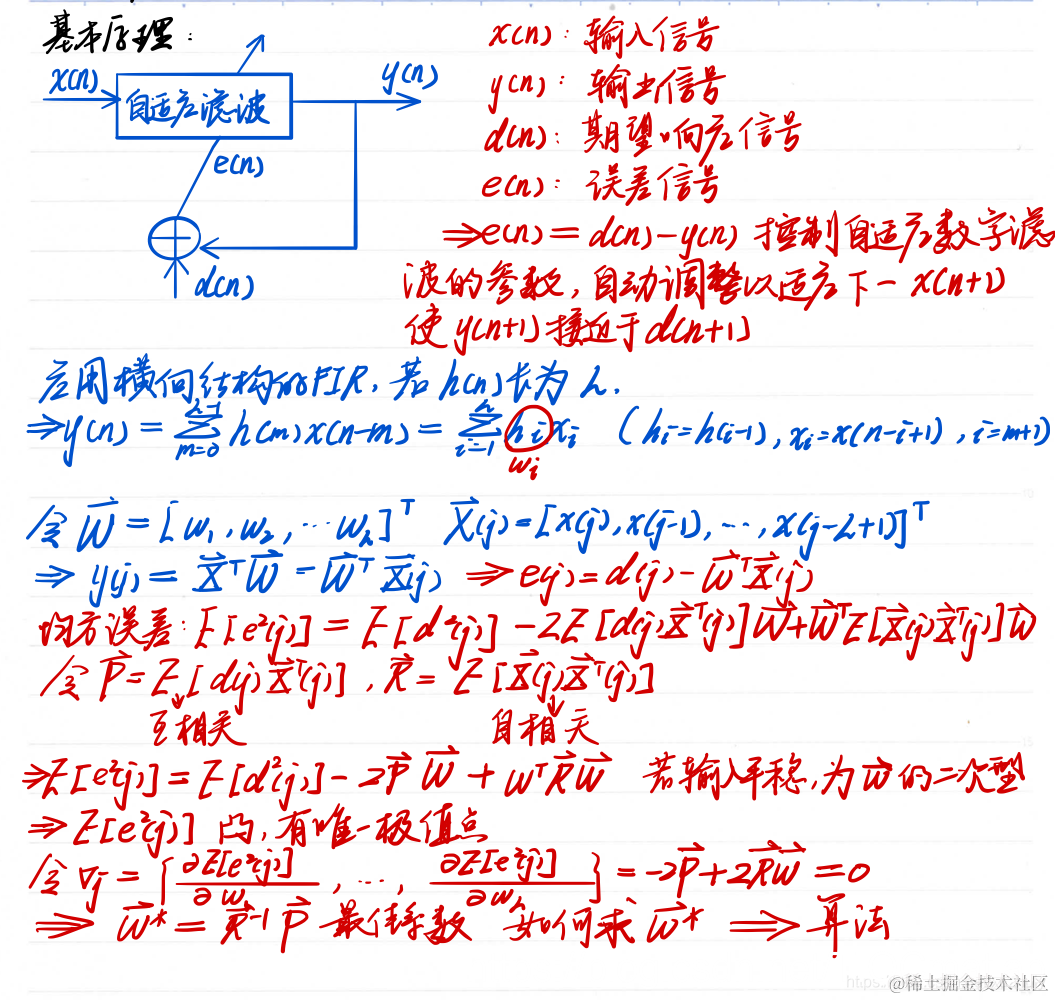 基本原理：
x(n)
自适应滤波
y(n)
e(n)
d(n)
x(n)：输入信号
y(n)：输出信号
d(n)：期望响应信号
e(n)：误差信号
⇒e(n)=d(n)-y(n) 控制自适应数字滤
波的参数，自动调整以适应下一x(n+1)
使y(n+1)接近于d(n+1)
应用横向结构的FIR，若h(n)长为L.
⇒y(n)=∑_{m=0}^{L-1} h(m)x(n-m)=∑_{i=1}^{L} h_i x_i （h_i=h(i-1), x_i=x(n-i+1), i=m+1)
w_i
令 W⃗=[w_1,w_2,…w_L]^T X⃗(j)=[x(j),x(j-1),…,x(j-L+1)]^T
⇒ y(j)=X⃗^T W⃗=W⃗^T X⃗(j) ⇒e(j)=d(j)-W⃗^T X⃗(j)
均方误差：E[e²(j)]=E[d²(j)]-2E[d(j)X⃗^T(j)]W⃗+W⃗^T E[X⃗(j)X⃗^T(j)]W⃗
令 P⃗=E[d(j)X⃗^T(j)], R⃗=E[X⃗(j)X⃗^T(j)]
互相关 自相关
⇒E[e²(j)]=E[d²(j)]-2P⃗ W⃗+W^T R⃗W⃗ 若输入平稳，为W⃗的二次型
⇒E[e²(j)] 凸，有唯一极值点
令 ∇j={∂E[e²(j)]/∂w_1,…,∂E[e²(j)]/∂w_L}=-2P⃗+2R⃗W⃗=0
⇒ W⃗*=R⃗^{-1}P⃗ 最佳系数 如何求W⃗* ⇒ 算法
@稀土掘金技术社区